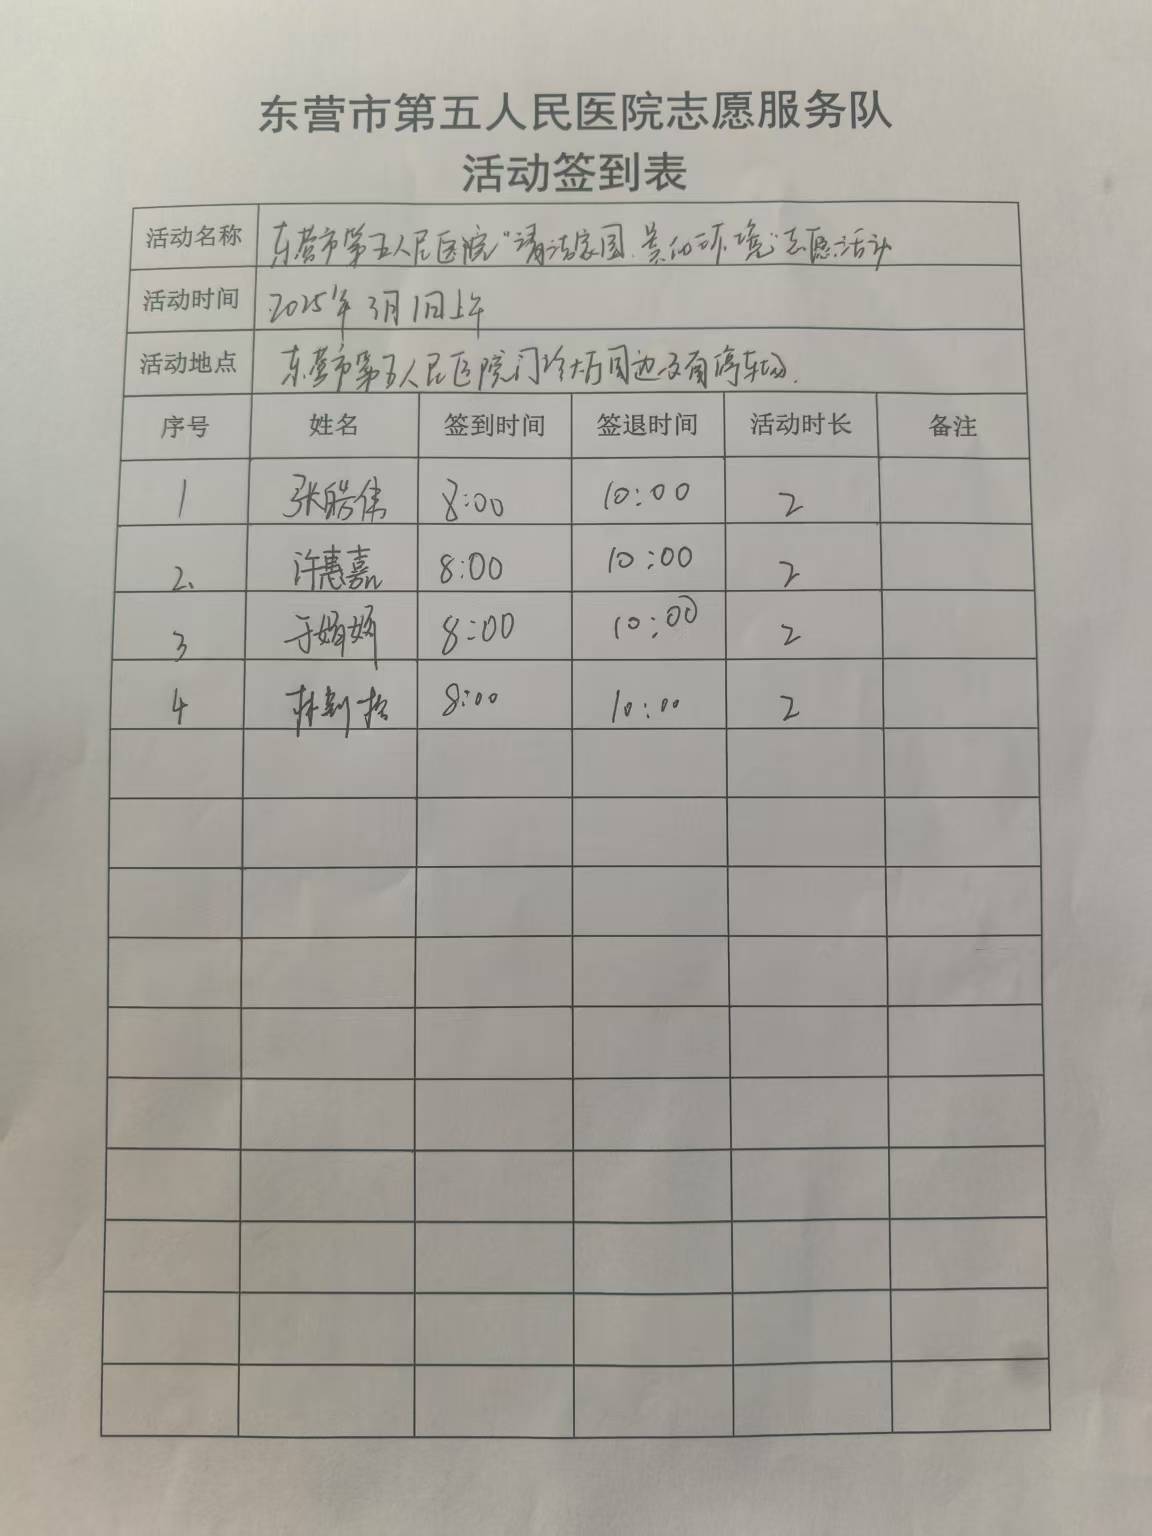 东营市第五人民医院志愿服务队
活动签到表
活动名称 东营市第五人民医院“清洁家园、美化环境”志愿活动
活动时间 2025年3月1日上午
活动地点 东营市第五人民医院门诊大厅周边及南停车场.
序号 姓名 签到时间 签退时间 活动时长 备注
1 张皓伟 8:00 10:00 2
2. 许惠嘉 8:00 10:00 2
3 于娟娟 8:00 10:00 2
4 林 8:00 10:00 2